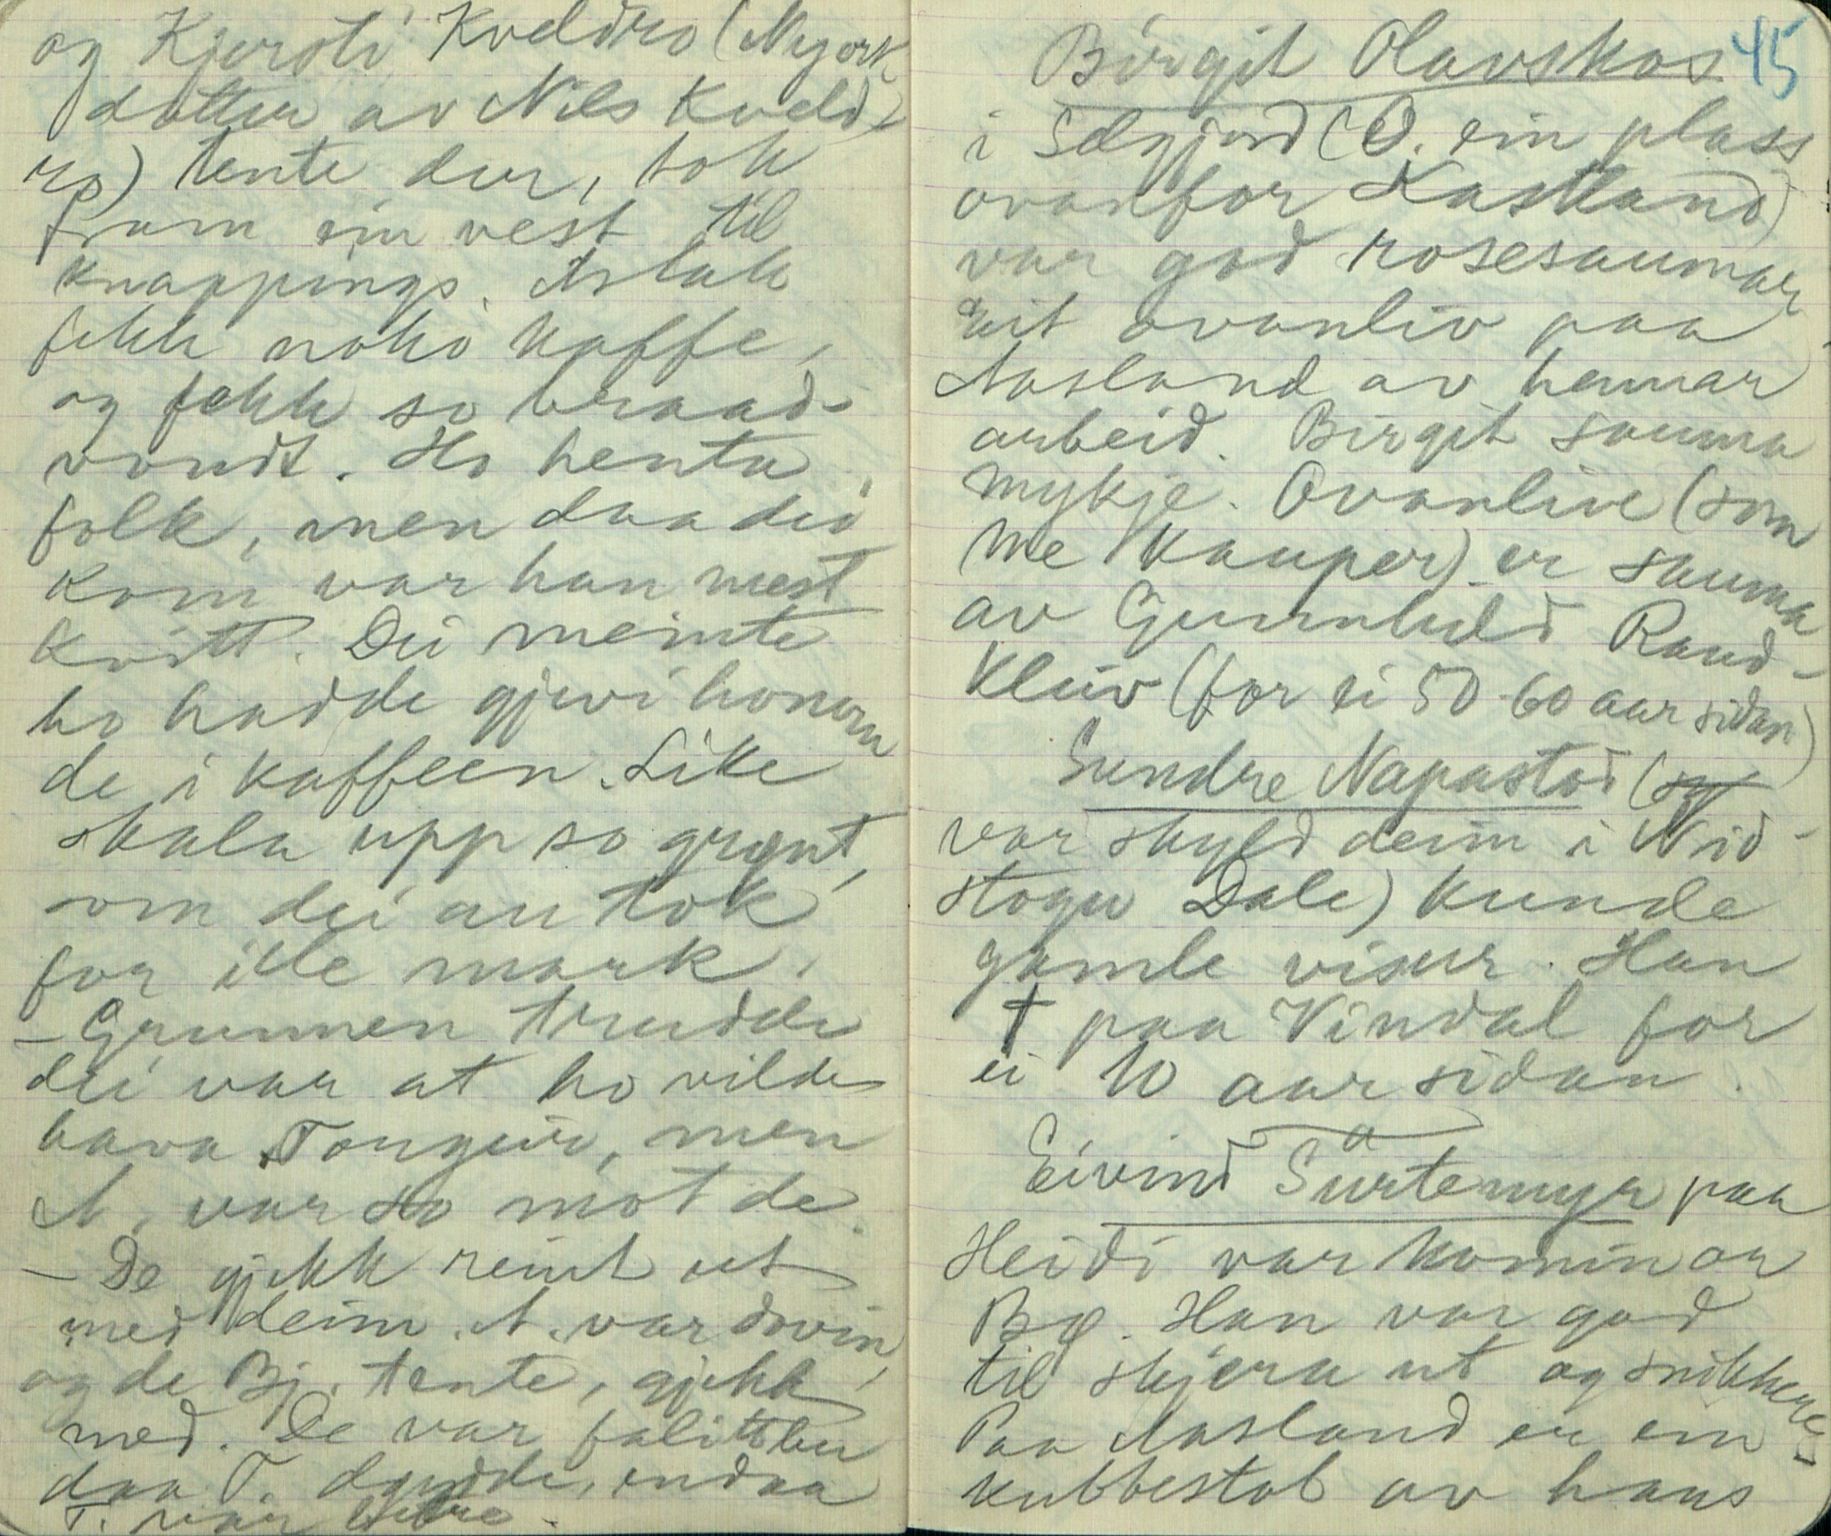 og Kjersti Kveldro (Mjork
dotter av Nils Kveld-
ro) tente der, tok
fram ein vest til
knappings. Aslak
fekk noko kaffe,
og fekk so braad-
vondt. Ho henta
folk, men daa dei
kom var han mest
kvitt. Dei meinte
ho hadde gjevi honom
de i kaffeen. Like
skala upp so grønt,
som dei au tok
for ille mark.
– Grunnen trudde
dei var at ho vilde
hava Tongeir, men
A. var so mot de.
– De gjekk reint ut
med deim. A. var doven,
og de Bj. tente, gjekk
med. De var falittbu
daa T. døydde, endaa
T. var betre.
45
Birgit Olavskos
i Selgjord (O. ein plass
ovanfor Kastland)
var god rosesaumar
Eit ovanliv paa
Aasland av hennar
arbeid. Birgit sauma
mykje. Ovanlive (som
me kauper) er sauma
av Gunnhild Raud-
kleiv (for ei 50-60 aar sidan)
Sundre Napastod (
var skyld deim i Nid-
stogu Dale) kunde
gamle visur. Han
† paa Vindal for
ei 10 aar sidan.
Eivind Surtemyr paa
a
Heidi var komin or
Bø. Han var god
til skjera ut og snikkere.
Paa Aasland er ein
kubbestol av hans